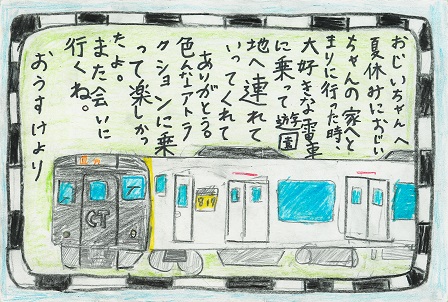 おじいちゃんへ
夏休みにおじい
ちゃんの家へと
まりに行った時、
大好きな電車
に乗って遊園
地へ連れて
いってくれて
ありがとう。
色んなアトラ
クションに乗
って楽しかっ
たよ。
また会いに
行くね。
おうすけより
CT
817